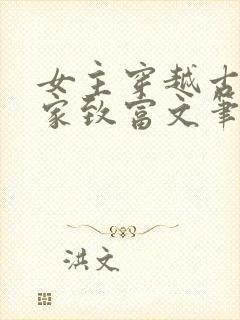 女主穿越古
家致富文笔
洪文